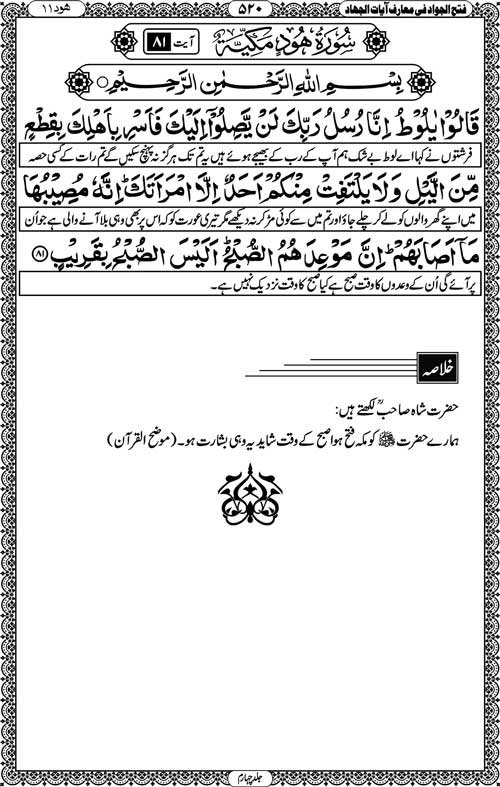 فتح الجواد فی معارف آیات الجهاد ۵۲۰ هود ۱۱
سُوْرَةُ هُوْدٍ مَكِّيَّةٌ آیت ۸۱
بِسْمِ اللهِ الرَّحْمٰنِ الرَّحِيْمِ
قَالُوْا يٰلُوْطُ اِنَّا رُسُلُ رَبِّكَ لَنْ يَّصِلُوْٓا اِلَيْكَ فَاَسْرِ بِاَهْلِكَ بِقِطْعٍ
فرشتوں نے کہا اے لوط بے شک ہم آپ کے رب کے بھیجے ہوئے ہیں یہ تم تک ہرگز نہ پہنچ سکیں گے تم رات کے کسی حصہ
مِّنَ الَّيْلِ وَلَا يَلْتَفِتْ مِنْكُمْ اَحَدٌ اِلَّا امْرَاَتَكَ ؕ اِنَّهٗ مُصِيْبُهَا
میں اپنے گھر والوں کو لے کر چلے جاؤ اور تم میں سے کوئی مڑ کر نہ دیکھے مگر تیری عورت کو کہ اس پر بھی وہی بلا آنے والی ہے جو اُن
مَاۤ اَصَابَهُمْ ؕ اِنَّ مَوْعِدَهُمُ الصُّبْحُ ؕ اَلَيْسَ الصُّبْحُ بِقَرِيْبٍ ۸۱
پر آئے گی اُن کے وعدوں کا وقت صبح ہے کیا صبح کا وقت نزدیک نہیں ہے۔
خلاصہ
حضرت شاہ صاحبؒ لکھتے ہیں:
ہمارے حضرت ﷺ کو مکہ فتح ہوا صبح کے وقت شاید یہ وہی بشارت ہو۔ (موضح القرآن)
جلد چہارم